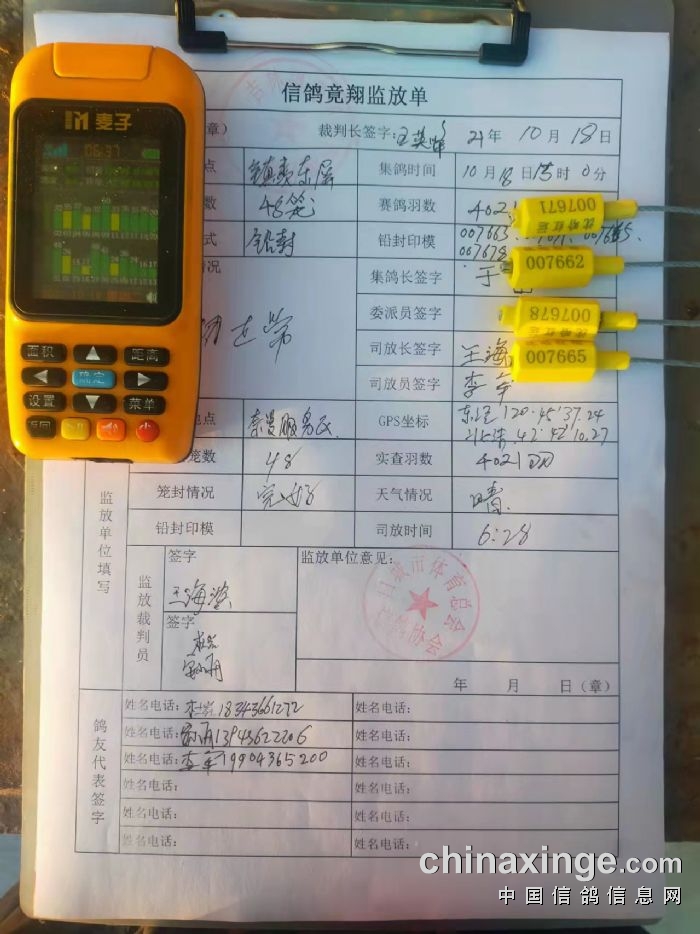 信鸽竞翔监放单
章）
裁判长签字:
21年 10月 18日
麦子
06:37
点
镇赉东屏
集鸽时间
10月18日15时0分
数
48笼
赛鸽羽数
4021
007671
式
铅封
铅封印模
007663
007665
007678
007662
情况
集鸽长签字
于
委派员签字
007678
司放长签字
王海
007665
司放员签字
李军
面积
距离
确定
设置
菜单
返回
地点
GPS坐标
东经120.45'37.24
北纬.42'42'10.27
笼数
48
实查羽数
4021羽
监放单位填写
笼封情况
完好
天气情况
晴
铅封印模
司放时间
6:28
监放裁判员
签字
王海
签字
监放单位意见：
白城市体育总会
信鸽协会
年 月 日（章）
鸽友代表签字
姓名电话：18343661272
姓名电话：
姓名电话：13943622206
姓名电话：
姓名电话：李军19904365200
姓名电话：
姓名电话：
姓名电话：
姓名电话：
姓名电话：
姓名电话：
姓名电话：
chinaxinge.com
中国信鸽信息网